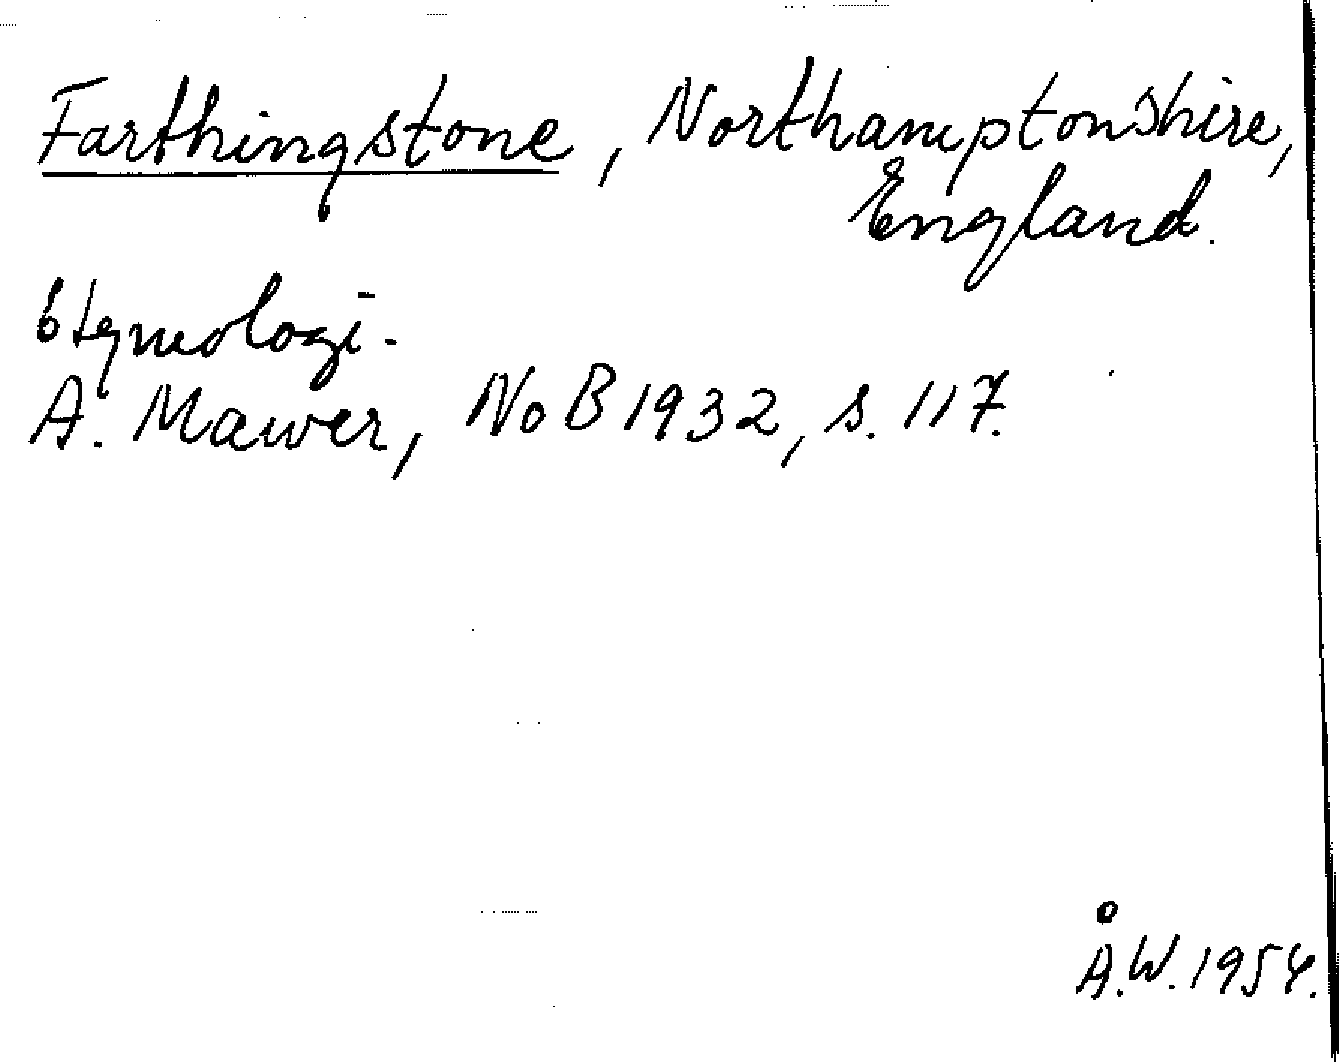 Farthingstone, Northamptonshire,
England.
Etymologi.
A. Mawer, NoB 1932, s. 117.
Å.W. 1954.